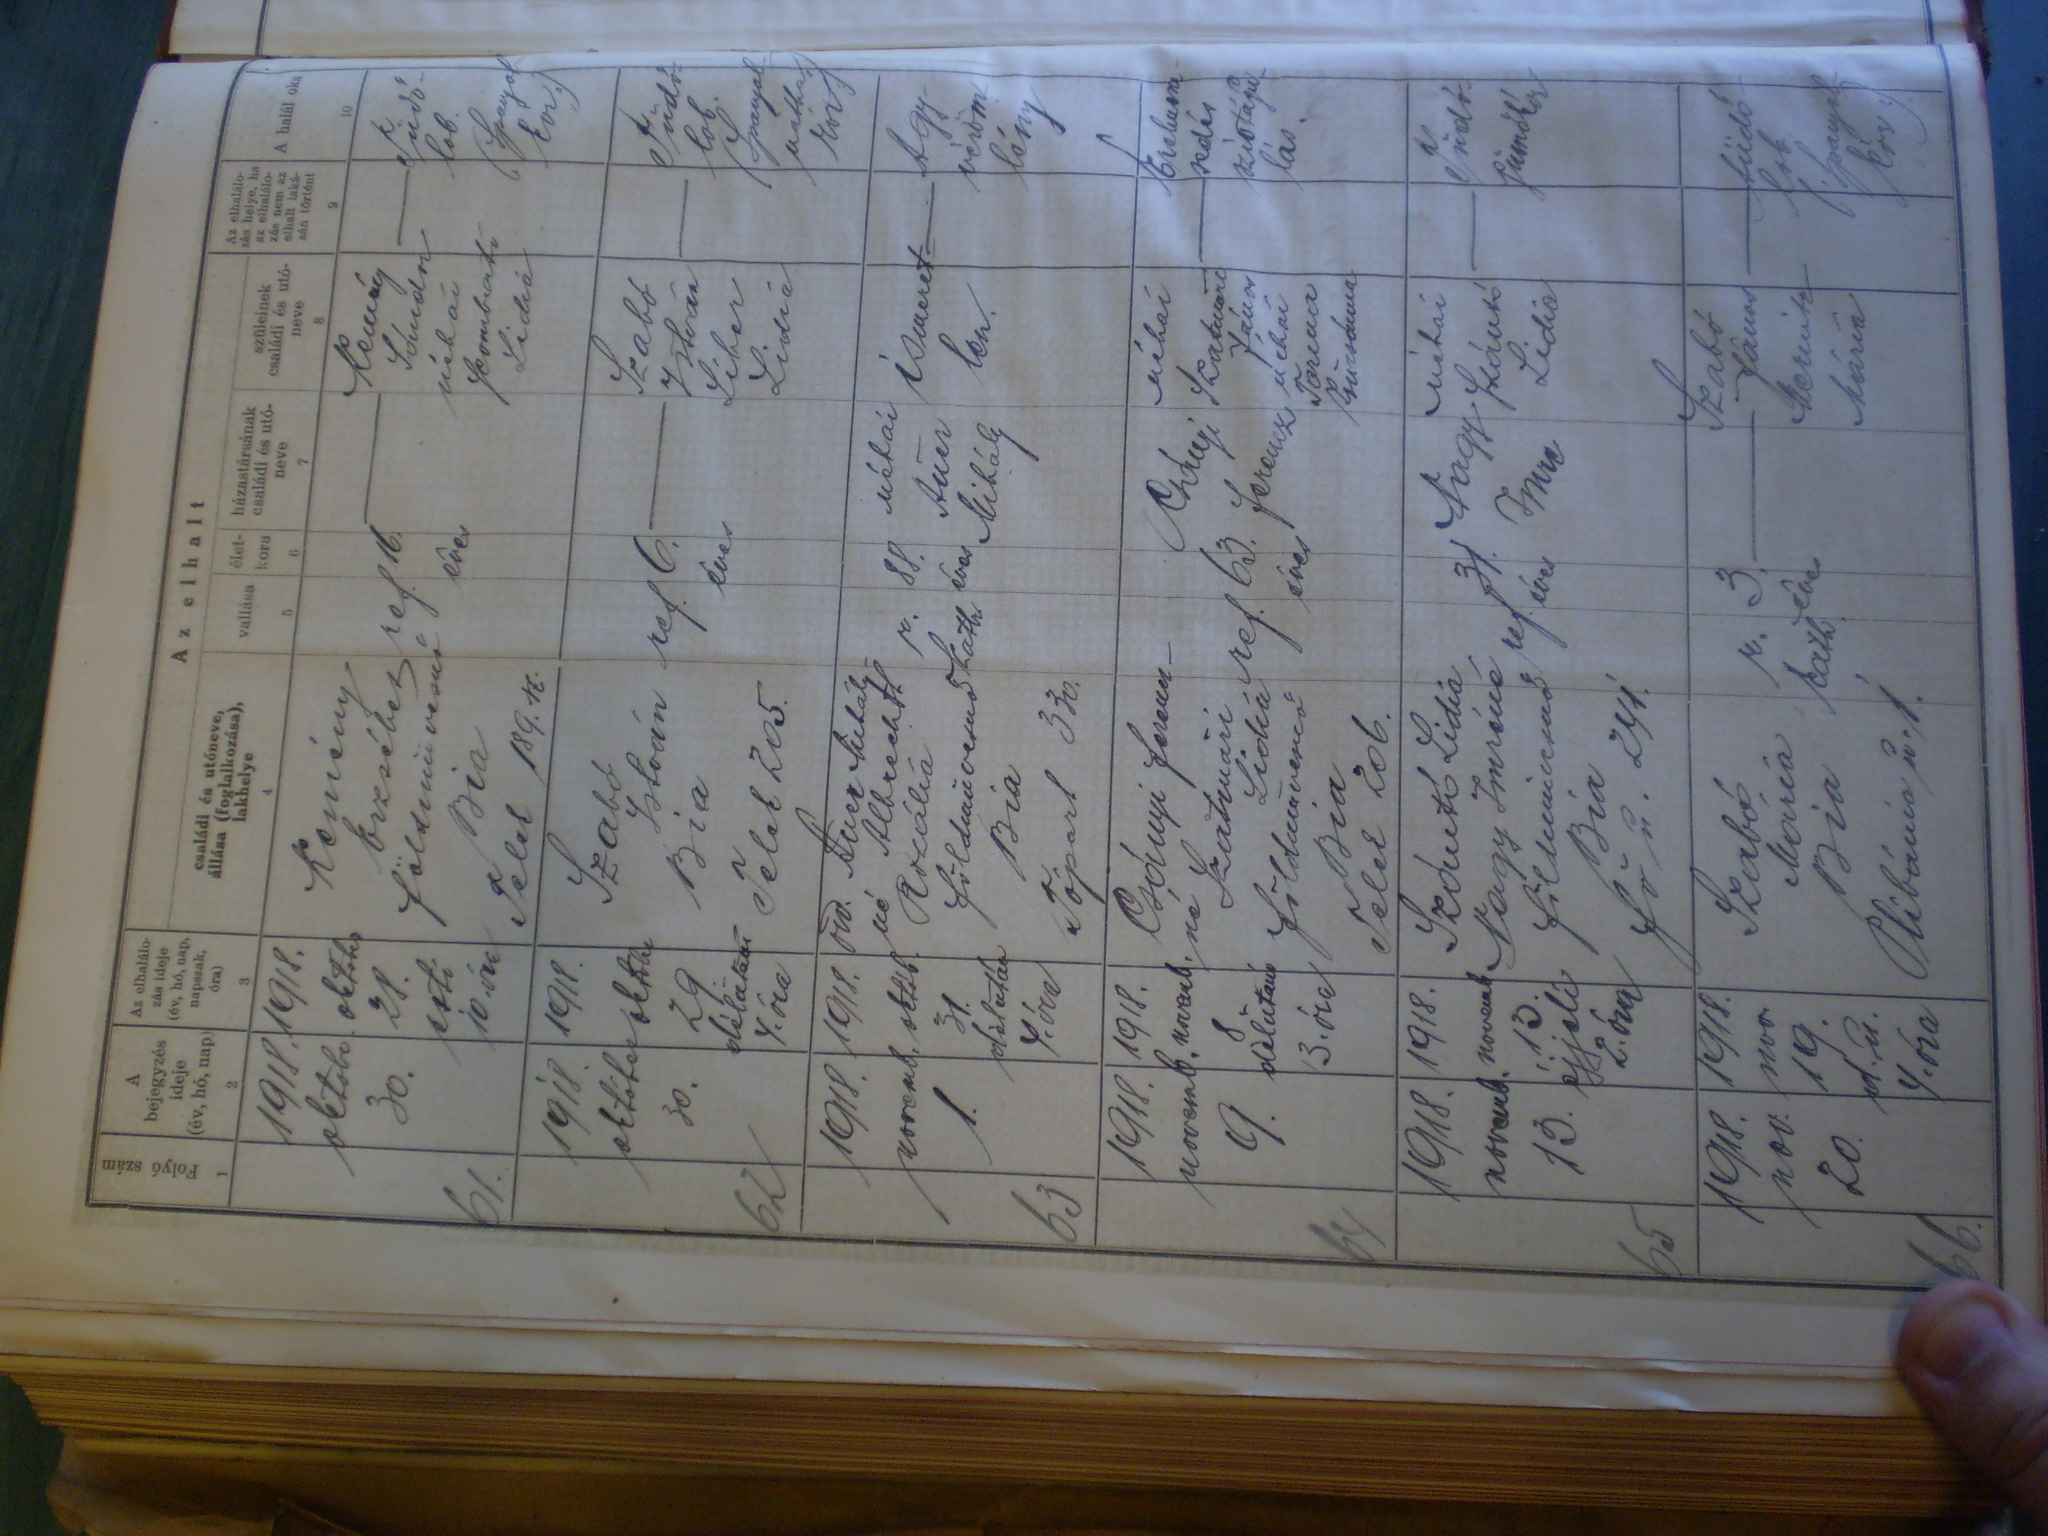 Az elhalt
Folyó szám
A bejegyzés ideje (év, hó, nap)
Az elhalálo-
zás ideje
(év, hó, nap,
napszak,
óra)
családi és utóneve,
állása (foglalkozása),
lakhelye
vallása
élet-
kora
házastársának
családi és utó-
neve
szüleinek
családi és utó-
neve
Az elhalálo-
zás helye, ha
az elhalálo-
zás nem az
elhalt laká-
sán történt
A halál oka
1 2 3 4 5 6 7 8 9 10
61.
1918.
október
30.
1918.
október
28.
esti
10 óra
Kemény
Erzsébet
földmívesnő
Bia
Telek 189.
ref.
16.
éves
Kemény
Sándor
néhai
Szombati
Lidia
Tüdő-
lob.
(Spanyol
kór)
62
1918.
október
30.
1918.
október
29
délután
4. óra
Szabó
István
Bia
Telek 205.
ref.
6.
éves
Szabó
István
Líber
Lidia
Tüdő-
lob.
(Spanyol-
kór)
63
1918.
novemb.
1.
1918.
októb.
31.
délután
4. óra
özv. Auer Mihály
né Albrecht
Rozália
földművesnő
Bia
Topart 330.
r.
kath
88.
éves
néhai
Auer
Mihály
Ismeret-
len.
Agy-
véröm
lény
64
1918.
novemb.
9.
1918.
novemb.
8
délután
3. óra
Csónyi Ferenc-
né
Szatmári
Lidia
földmívesnő
Bia
Telek 206.
ref.
63.
éves
Csónyi
Ferencz
néhai
Szatmári
János
néhai
Zsuzsánna
szivtágu-
lás.
65
1918.
novemb.
13.
1918.
novemb.
13.
éjjeli
2. óra
Szántó Lidia
Nagy Imréné
földmivesnő
Bia
Fő u. 241.
ref.
31.
éves
Nagy
Imre
néhai
Szántó
Lidia
Tüdő-
gümőkór
66.
1918.
nov.
20.
1918.
nov.
19.
d. u.
4. óra
Szabó
Mária
Bia
Plibánia u. 1.
r.
kath.
3.
éves
Szabó
János
Mária
Tüdő-
lob
(spanyol
kór)